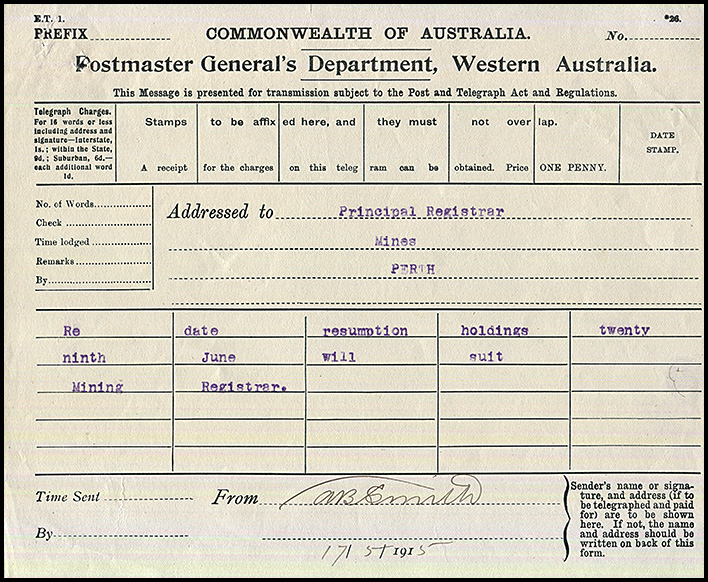 E.T. 1. *26.
PREFIX COMMONWEALTH OF AUSTRALIA. No.
Postmaster General's Department, Western Australia.
This Message is presented for transmission subject to the Post and Telegraph Act and Regulations.
Telegraph Charges.
For 16 words or less
including address and
signature—Interstate,
1s.; within the State,
9d.; Suburban, 6d.—
each additional word
1d.
Stamps to be affix ed here, and they must not over lap.
A receipt for the charges on this teleg ram can be obtained. Price ONE PENNY.
DATE
STAMP.
No. of Words
Check
Time lodged
Remarks
By
Addressed to Principal Registrar
Mines
PERTH
Re date resumption holdings twenty
ninth June will suit
Mining Registrar.
Time Sent From AB Smith
By
17/5/1915
Sender's name or signa-
ture, and address (if to
be telegraphed and paid
for) are to be shown
here. If not, the name
and address should be
written on back of this
form.